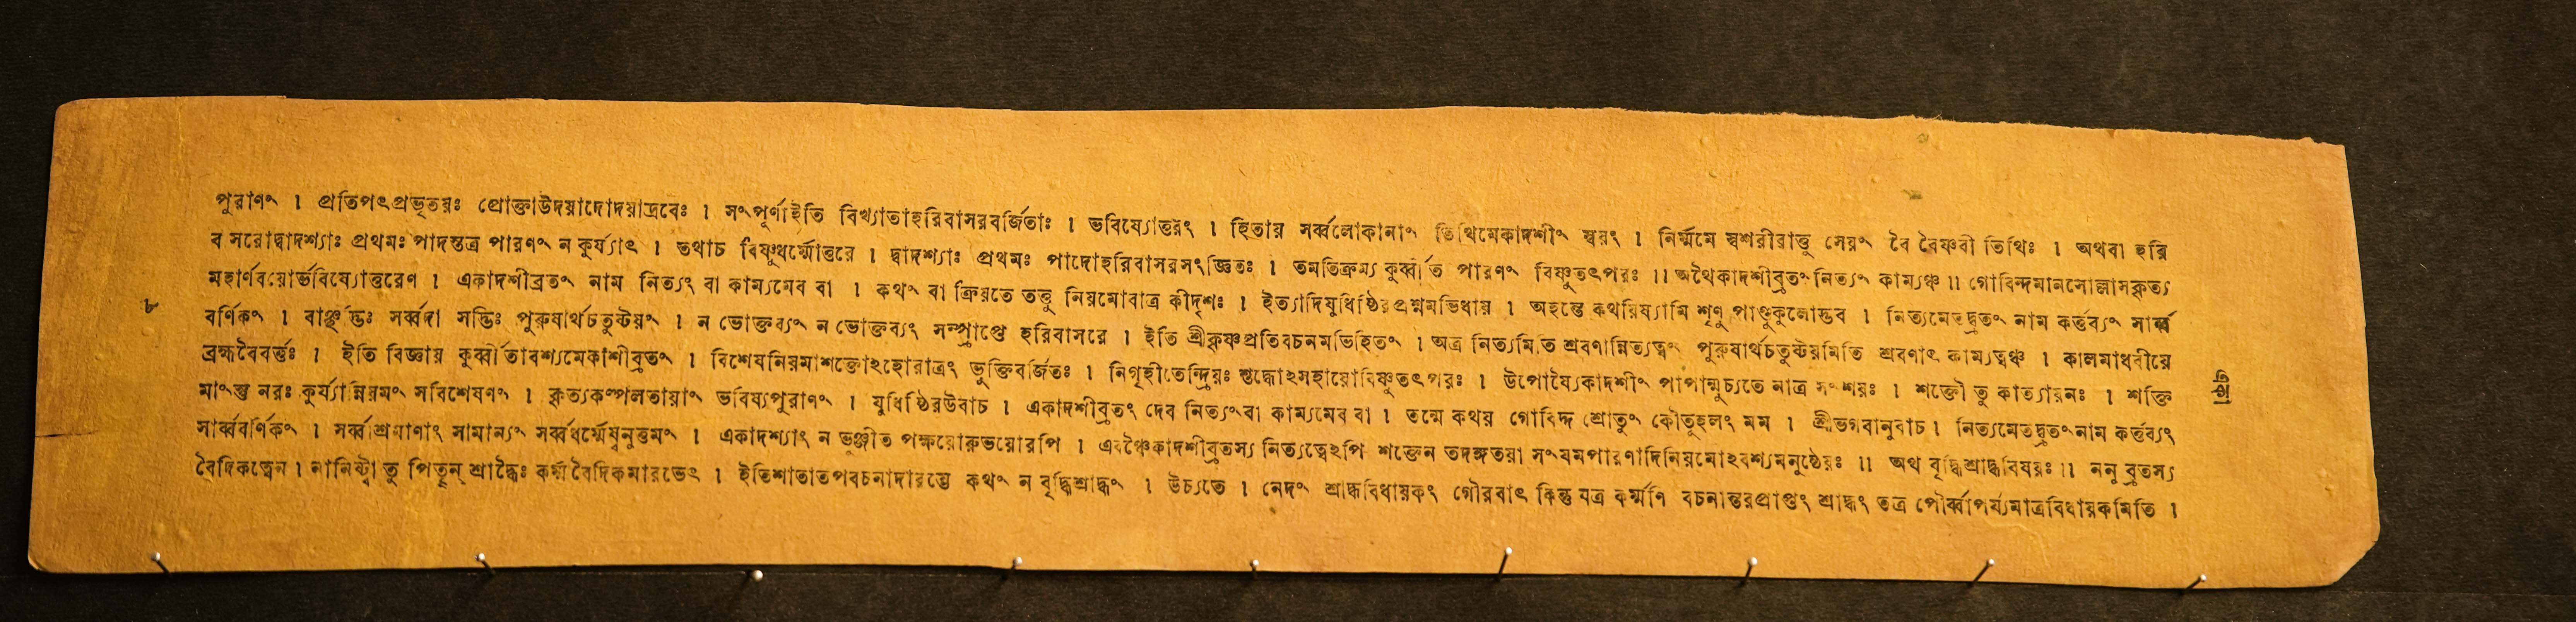 পুরাণং । প্রতিপৎপ্রভৃতয়ঃ প্রোক্তাউদয়াদোদয়াদ্রবেঃ । সংপূর্ণাইতি বিখ্যাতাহরিবাসরবর্জিতাঃ । ভবিষ্যোত্তরং । হিতায় সর্ব্বলোকানাং তিথিমেকাদশীং স্বয়ং । নির্ম্মমে স্বশরীরাত্তু সেয়ং বৈ বৈষ্ণবী তিথিঃ । অথবা হরি
ব সরোদ্বাদশ্যাঃ প্রথমঃ পাদস্তত্র পারণং ন কুর্য্যাৎ । তথাচ বিষ্ণুধর্ম্মোত্তরে । দ্বাদশ্যাঃ প্রথমঃ পাদোহরিবাসরসংজ্ঞিতঃ । তমতিক্রম্য কুর্ব্বীত পারণং বিষ্ণুতৎপরঃ ॥ অথৈকাদশীব্রতং নিত্যং কাম্যঞ্চ ॥ গোবিন্দমানসোল্লাসকৃত্য
মহার্ণবয়োর্ভবিষ্যোত্তরেণ । একাদশীব্রতং নাম নিত্যং বা কাম্যমেব বা । কথং বা ক্রিয়তে তত্তু নিয়মোবাত্র কীদৃশঃ । ইত্যাদিযুধিষ্ঠিরপ্রশ্নমভিধায় । অহন্তে কথয়িষ্যামি শৃণু পাণ্ডুকুলোদ্ভব । নিত্যমেতদ্ব্রতং নাম কর্ত্তব্যং সার্ব্ব
বর্ণিকং । সর্ব্বদা সদ্ভিঃ পুরুষার্থচতুষ্টয়ং । ন ভোক্তব্যং ন ভোক্তব্যং সম্প্রাপ্তে হরিবাসরে । ইতি শ্রীকৃষ্ণপ্রতিবচনমভিহিতং । অত্র নিত্যমিতি শ্রবণান্নিত্যত্বং পুরুষার্থচতুষ্টয়মিতি শ্রবণাৎ কাম্যত্বঞ্চ । কালমাধবীয়ে
ব্রহ্মবৈবর্ত্তঃ । ইতি বিজ্ঞায় কুর্ব্বীতাবশ্যমেকাশীব্রতং । বিশেষনিয়মাশক্তোঽহোরাত্রং ভুক্তিবর্জিতঃ । নিগৃহীতেন্দ্রিয়ঃ শুদ্ধোঽসহায়োবিষ্ণুতৎপরঃ । উপোষ্যৈকাদশীং পাপান্মুচ্যতে নাত্র সংশয়ঃ । শক্তৌ তু কাত্যায়নঃ । শক্তি
মাংস্তু নরঃ কুর্য্যান্নিয়মং সবিশেষণং । কৃত্যকল্পলতায়াং ভবিষ্যপুরাণং । যুধিষ্ঠিরউবাচ । একাদশীব্রতং দেব নিত্যংবা কাম্যমেব বা । তন্মে কথয় গোবিন্দ শ্রোতুং কৌতূহলং মম । শ্রীভগবানুবাচ । নিত্যমেতদ্ব্রতংনাম কর্ত্তব্যং
সার্ব্ববর্ণিকং । সর্ব্বাশ্রমাণাং সামান্যং সর্ব্বধর্ম্মেষ্বনুত্তমং । একাদশ্যাং ন ভুঞ্জীত পক্ষয়োরুভয়োরপি । এবঞ্চৈকাদশীব্রতস্য নিত্যত্বেঽপি শক্তেন তদঙ্গতয়া সংযমপারণাদিনিয়মোঽবশ্যমনুষ্ঠেয়ঃ ॥ অথ বৃদ্ধিশ্রাদ্ধবিষয়ঃ ॥ ননু ব্রতস্য
বৈদিকত্বেন । নানিষ্ট্বা তু পিতৄন্ শ্রাদ্ধৈঃ কর্ম্ম বৈদিকমারভেৎ । ইতিশাতাতপবচনাদারম্ভে কথং ন বৃদ্ধিশ্রাদ্ধং । উচ্যতে । নেদং শ্রাদ্ধবিধায়কং গৌরবাৎ কিন্তু যত্র কর্ম্মণি বচনান্তরপ্রাপ্তং শ্রাদ্ধং তত্র পৌর্ব্বাপর্য্যমাত্রবিধায়কমিতি ।